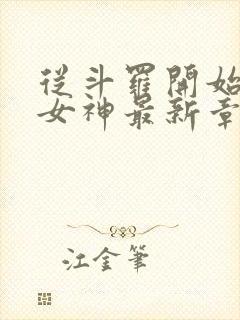 從斗羅開始
女神最新章
江金筆